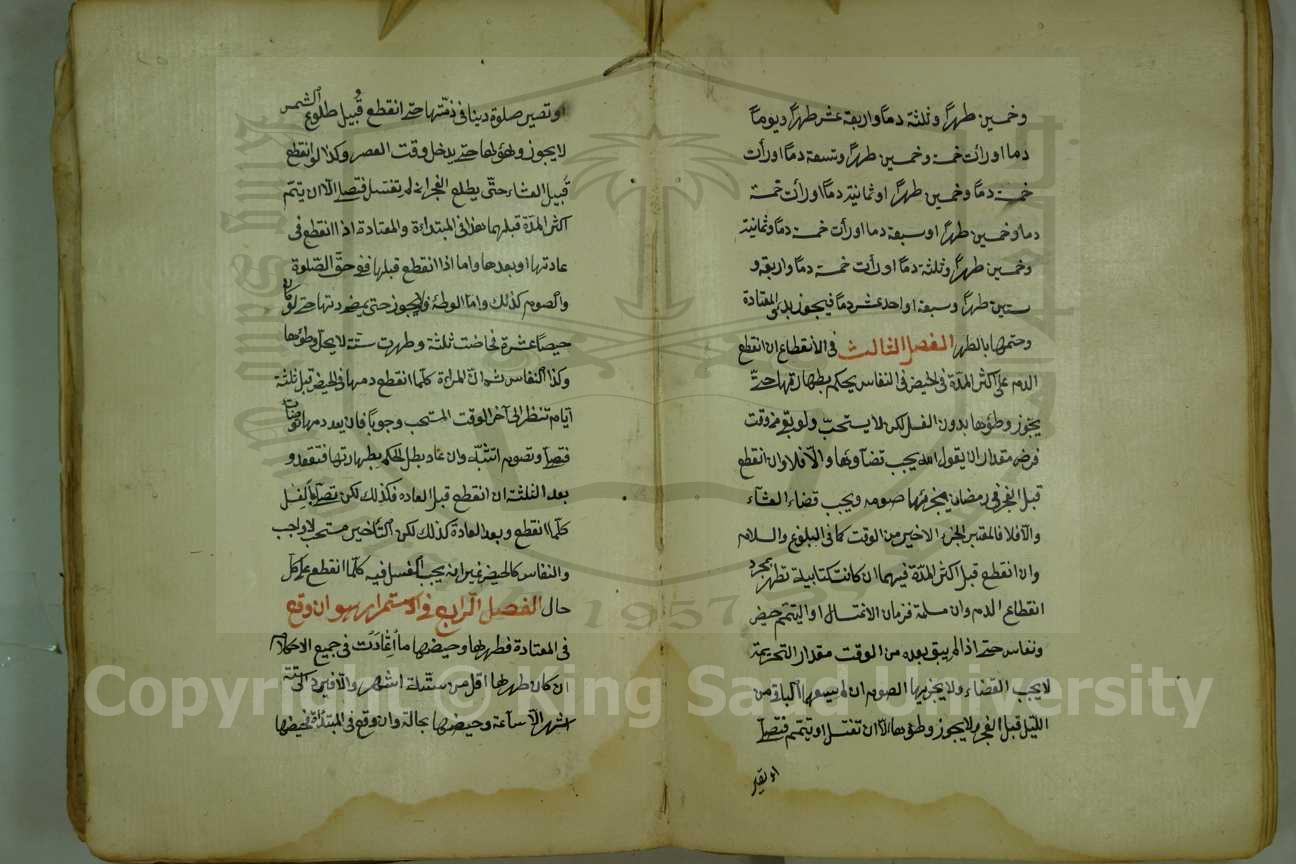 وخمسين طهرا وثلثة دما واربعة عشر طهرا ويوما
دما او رأت خمسة وخمسين طهرا وتسعة دما او رأت
خمسة دما وخمسين طهرا او ثمانية دما او رأت خمسة
دما وخمسين طهرا او سبعة دما او رأت خمسة دما وثمانية
وخمسين طهرا وثلثة دما او رأت خمسة دما واربعة و
ستين طهرا وسبعة او احد عشر دما فيجوز بدئ المعتادة
وختمها بالطهر الفصل الثالث في الانقطاع ان انقطع
الدم على اكثر المدة في الحيض في النفاس يحكم بطهارتها حتى
يجوز وطؤها بدون الغسل لكن لا يستحب ولو بقي من وقت
فرض مقدار ان يقول الله يجب قضاؤها والا فلا وان انقطع
قبل الفجر في رمضان يجزيها صومه ويجب قضاء العشاء
والا فلا فالمعتبر الجزء الاخير من الوقت كما في البلوغ والسلام
وان انقطع قبل اكثر المدة فيهما ان كانت كتابية تطهر بمجرد
انقطاع الدم وان مسلمة فزمان الاغتسال او التيمم حيض
ونفاس حتى اذا لم يبق بعده من الوقت مقدار التحريمة
لا يجب القضاء ولا يجزيها الصوم ان لم يسعها الباقي من
الليل قبل الفجر ولا يجوز وطؤها الا ان تغتسل او تتيمم فتصلي
او تصير
او تصير صلوة دينا في ذمتها حتى انقطع قبيل طلوع الشمس
لا يجوز وطؤها حتى يدخل وقت العصر وكذا لو انقطع
قبيل العشاء حتى يطلع الفجر ان لم تغتسل فتصلي الا ان يتم
اكثر المدة قبلهما هذا في المبتدأة والمعتادة اذا انقطع في
عادتها او بعدها واما اذا انقطع قبلها فهو حق الصلوة
والصوم كذلك واما الوطئ فلا يجوز حتى يمضي عادتها حتى لو كان
حيضها عشرة فحاضت ثلثة وطهرت ستة لا يحل وطؤها
وكذا النفاس ثم ان المراءة كلما انقطع دمها في الحيض قبل ثلثة
ايام تنتظر الى آخر الوقت المستحب وجوبا فان لم يعد دمها توضأت
فتصلي وتصوم وان عاد بطل الحكم بطهارتها فتقعد و
بعد الثلثة ان انقطع قبل العادة فكذلك لكن تصلي بالغسل
كلما انقطع وبعد العادة كذلك لكن التأخير مستحب لا واجب
والنفاس كالحيض غير انه يجب الغسل فيه كلما انقطع على كل
حال الفصل الرابع في الاستمرار هو ان وقع
في المعتادة فطهرها وحيضها ما اعتادت في جميع الاحكام
ان كان طهرها اقل من ستة اشهر والا فيرد الى ستة
اشهر الا ساعة وحيضها بحاله وان وقع في المبتدأة فحيضها
Copyright © King Saud University
1957